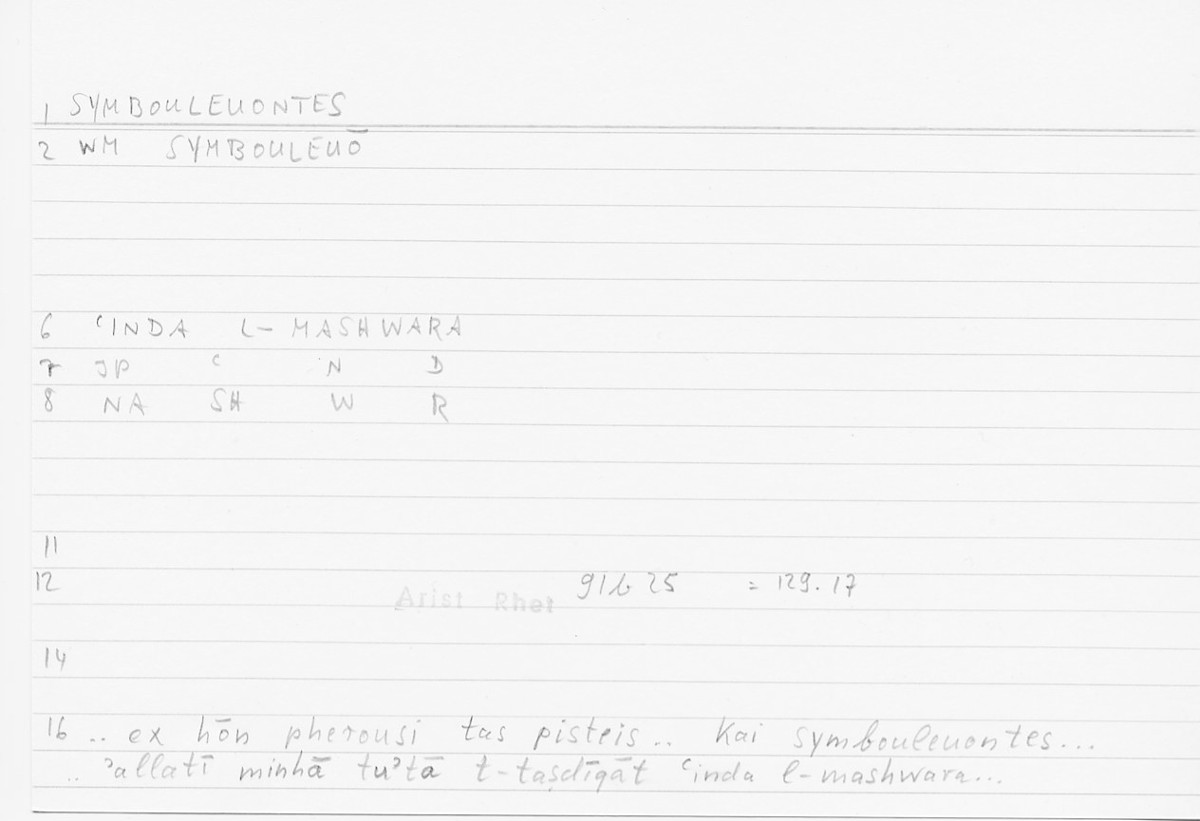 1 SYMBOULEUONTES
2 WM SYMBOULEUŌ
6 ʿINDA L- MASHWARA
7 JP ʿ N D
8 NA SH W R
11
12 Arist Rhet 91b 25 = 129.17
14
16 .. ex hōn pherousi tas pisteis .. kai symbouleuontes...
.. ʾallatī minhā tuʾtā t-taṣdīqāt ʿinda l-mashwara...